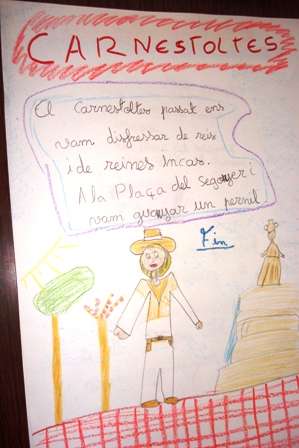 CARNESTOLTES
El Carnestoltes passat ens
vam disfressar de reis
i de reines Incas.
A la Plaça del Segonyer i
vam guanyar un pernil
Fin